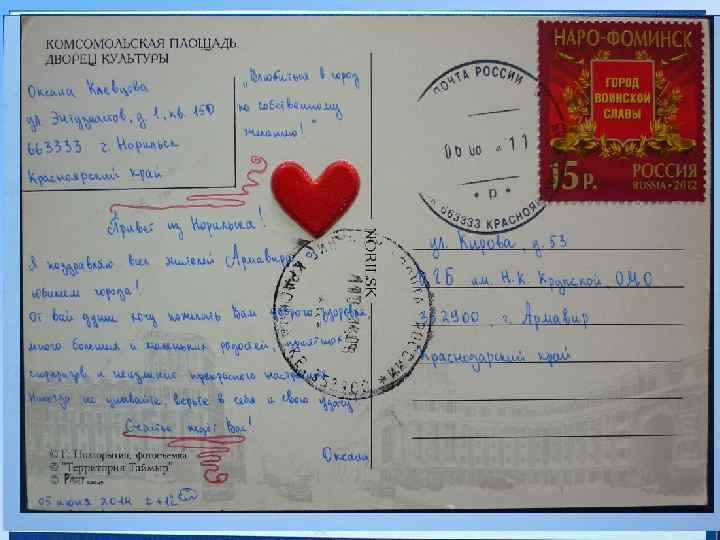 КОМСОМОЛЬСКАЯ ПЛОЩАДЬ.
ДВОРЕЦ КУЛЬТУРЫ
Оксана Клевцова
ул. Энтузиастов, д. 1, кв. 150
663333 г. Норильск
Красноярский край
"Влюбиться в город
по собственному
желанию!"
Привет из Норильска!
Я поздравляю всех жителей Армавира
юбилеем города!
От всей души хочу пожелать Вам доброго здоровья,
много больших и маленьких радостей, приятных
сюрпризов и неизменно прекрасного настроения
Никогда не унывайте, верьте в себя и свою удачу!
Счастье ждёт Вас!
Оксана
© Г. фотосъемка
© "Территория Таймыр"
©
05 июня 2014 t +12
NORILSK
ПОЧТА РОССИИ
11
р
663333 КРАСНОЯ
ПОЧТА РОССИИ
НАРО-ФОМИНСК
ГОРОД
ВОИНСКОЙ
СЛАВЫ
15 Р.
РОССИЯ
RUSSIA • 2012
ул. Кирова, д. 53
ЦГБ им. Н.К. Крупской, ОМО
352900, г. Армавир
Краснодарский край